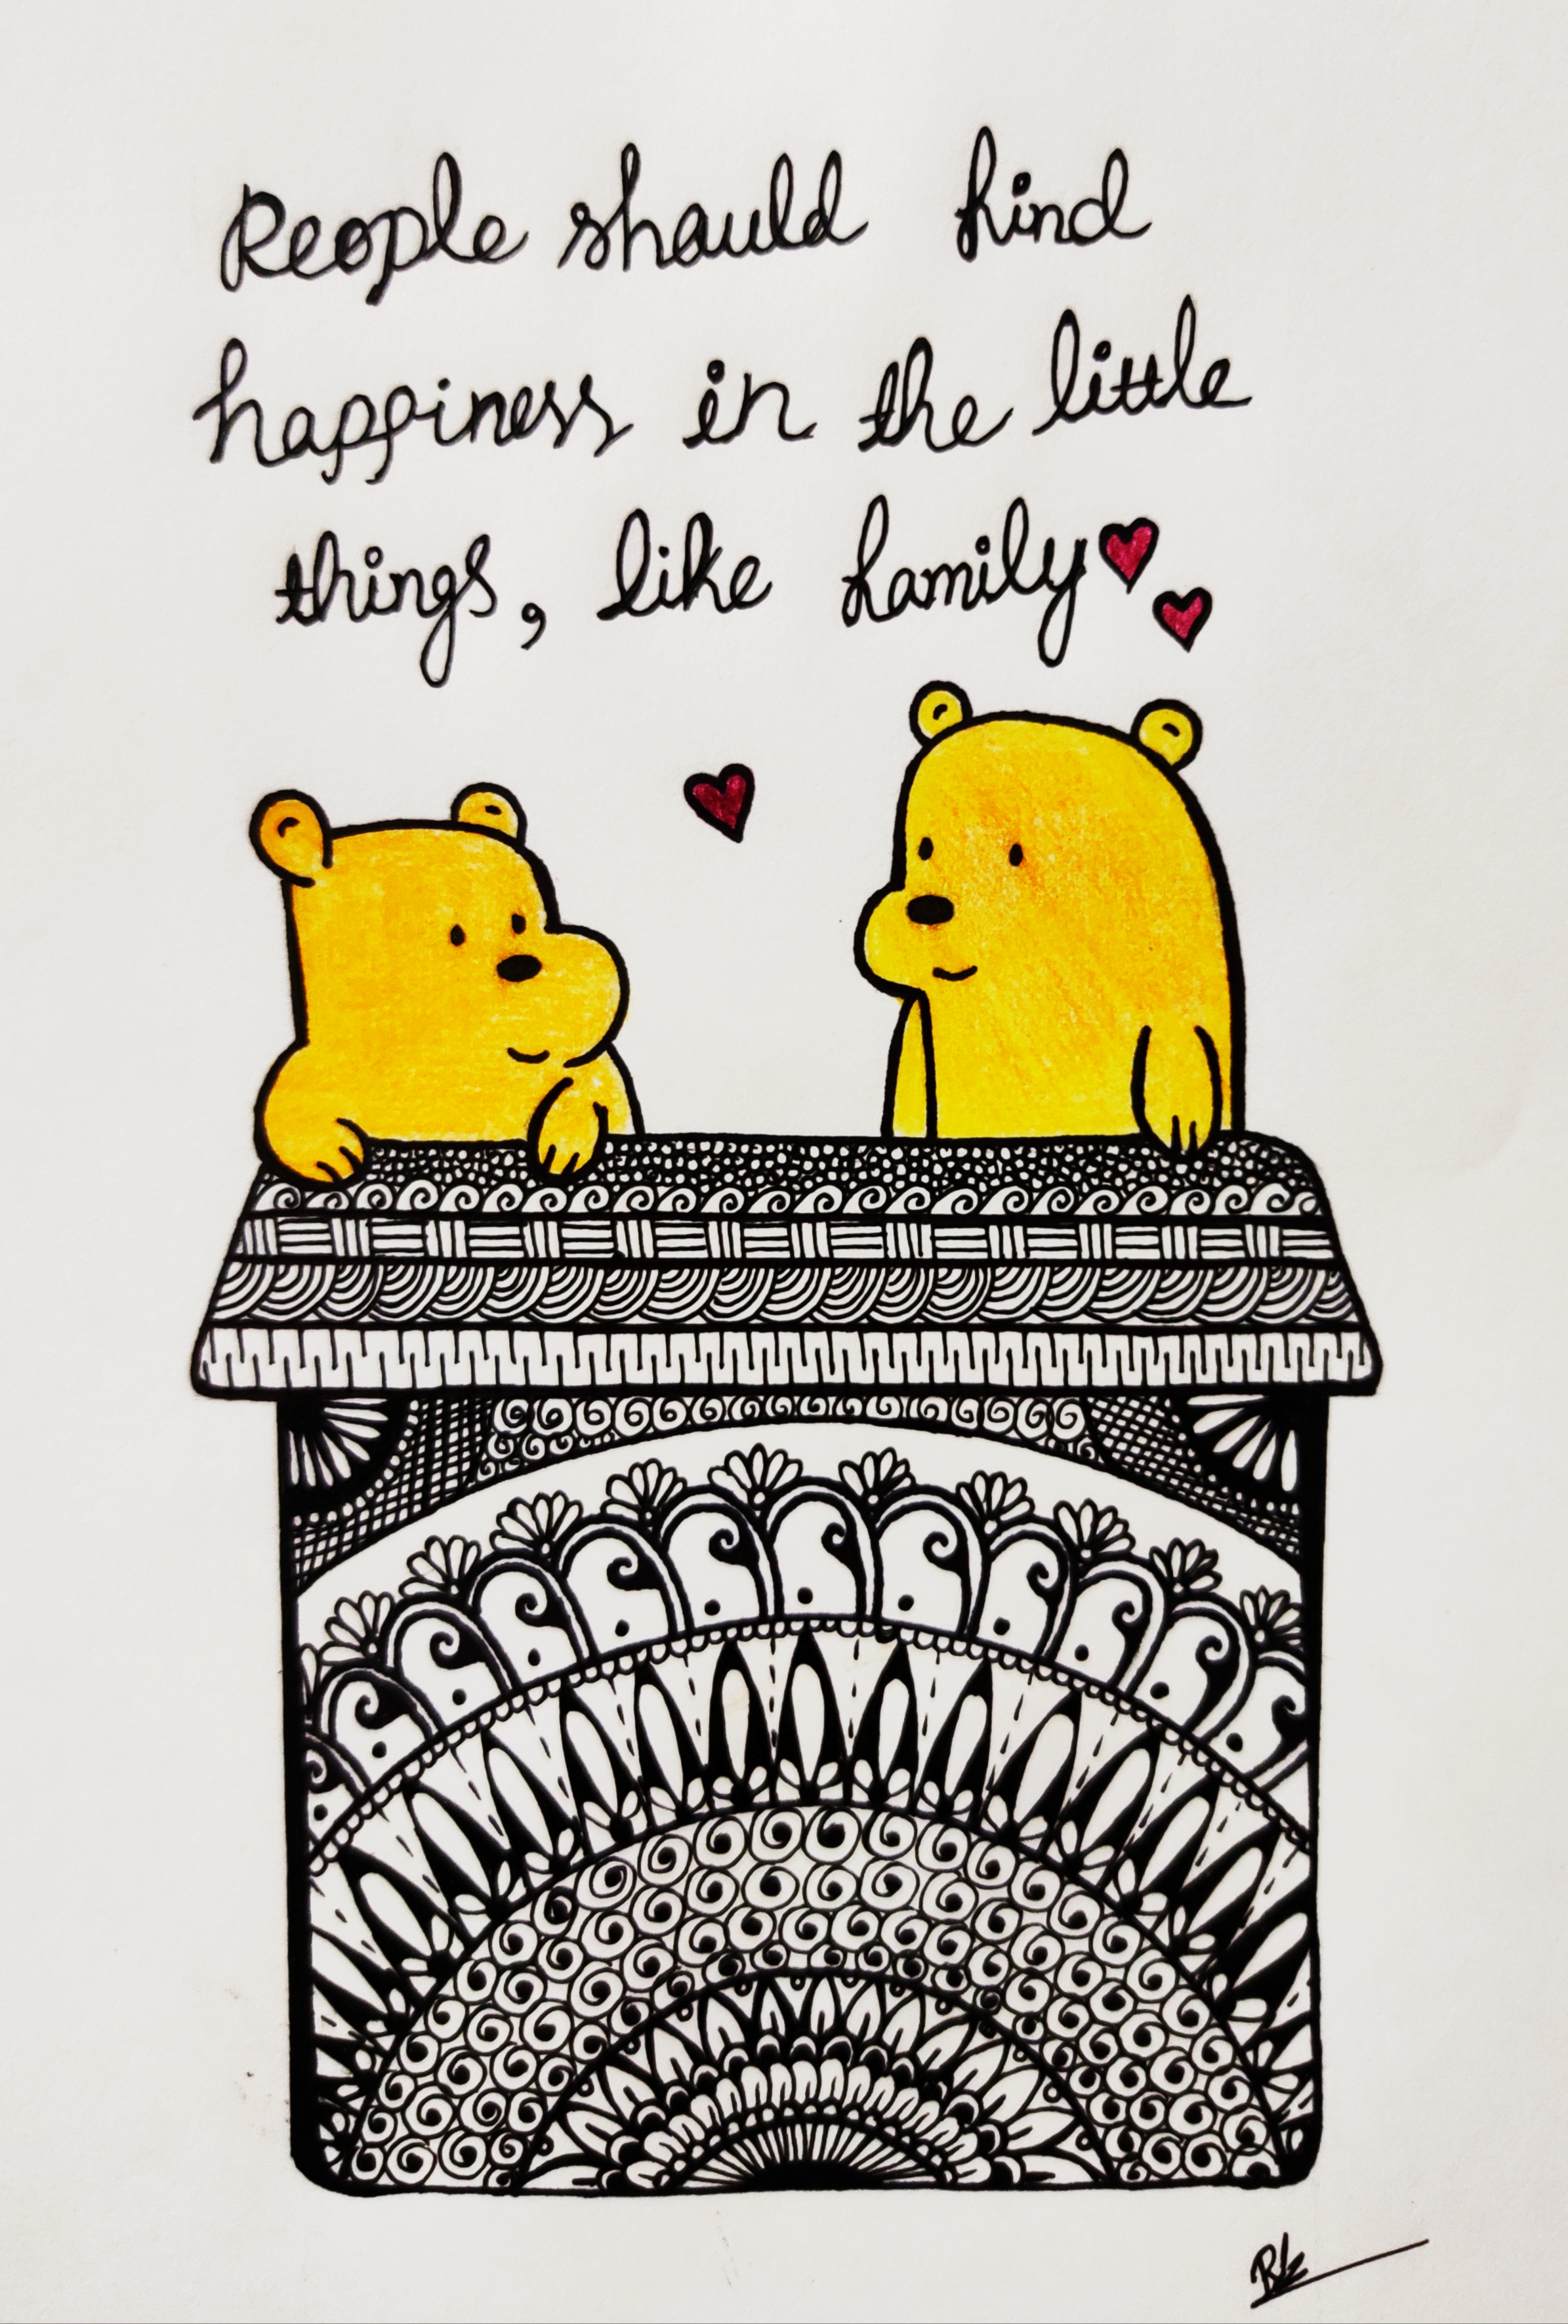 People should find
happiness in the little
things, like family